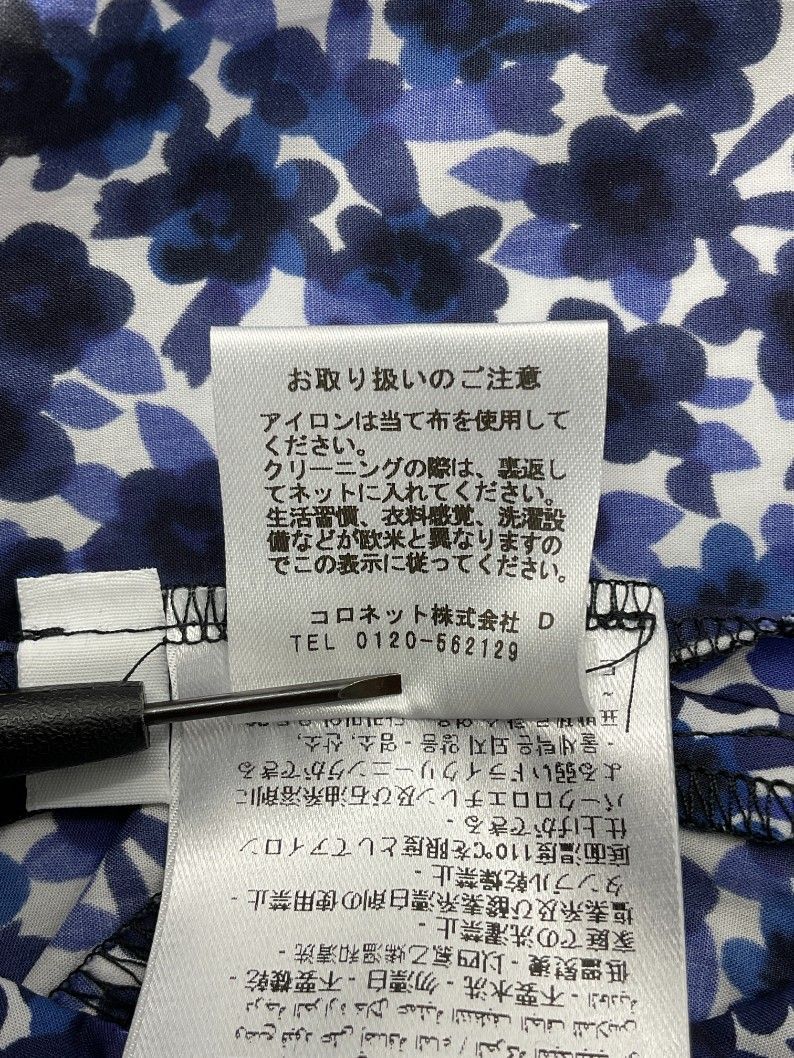 お取り扱いのご注意
アイロンは当て布を使用して
ください。
クリーニングの際は、裏返し
てネットに入れてください。
生活習慣、衣料感覚、洗濯設
備などが欧米と異なりますの
でこの表示に従ってください。
コロネット株式会社 D
TEL 0120-562129
低温熨燙 - 以四氯乙烯溫和清洗
不要水洗 - 勿漂白 - 不要機乾 -
家庭での洗濯禁止 -
塩素系及び酸素系漂白剤の使用禁止 -
タンブル乾燥禁止 -
底面温度110℃を限度としてアイロン
仕上げができる -
パークロロエチレン及び石油系溶剤に
よる弱いドライクリーニングができる
- 물세탁은 되지 않음 - 염소, 산소,